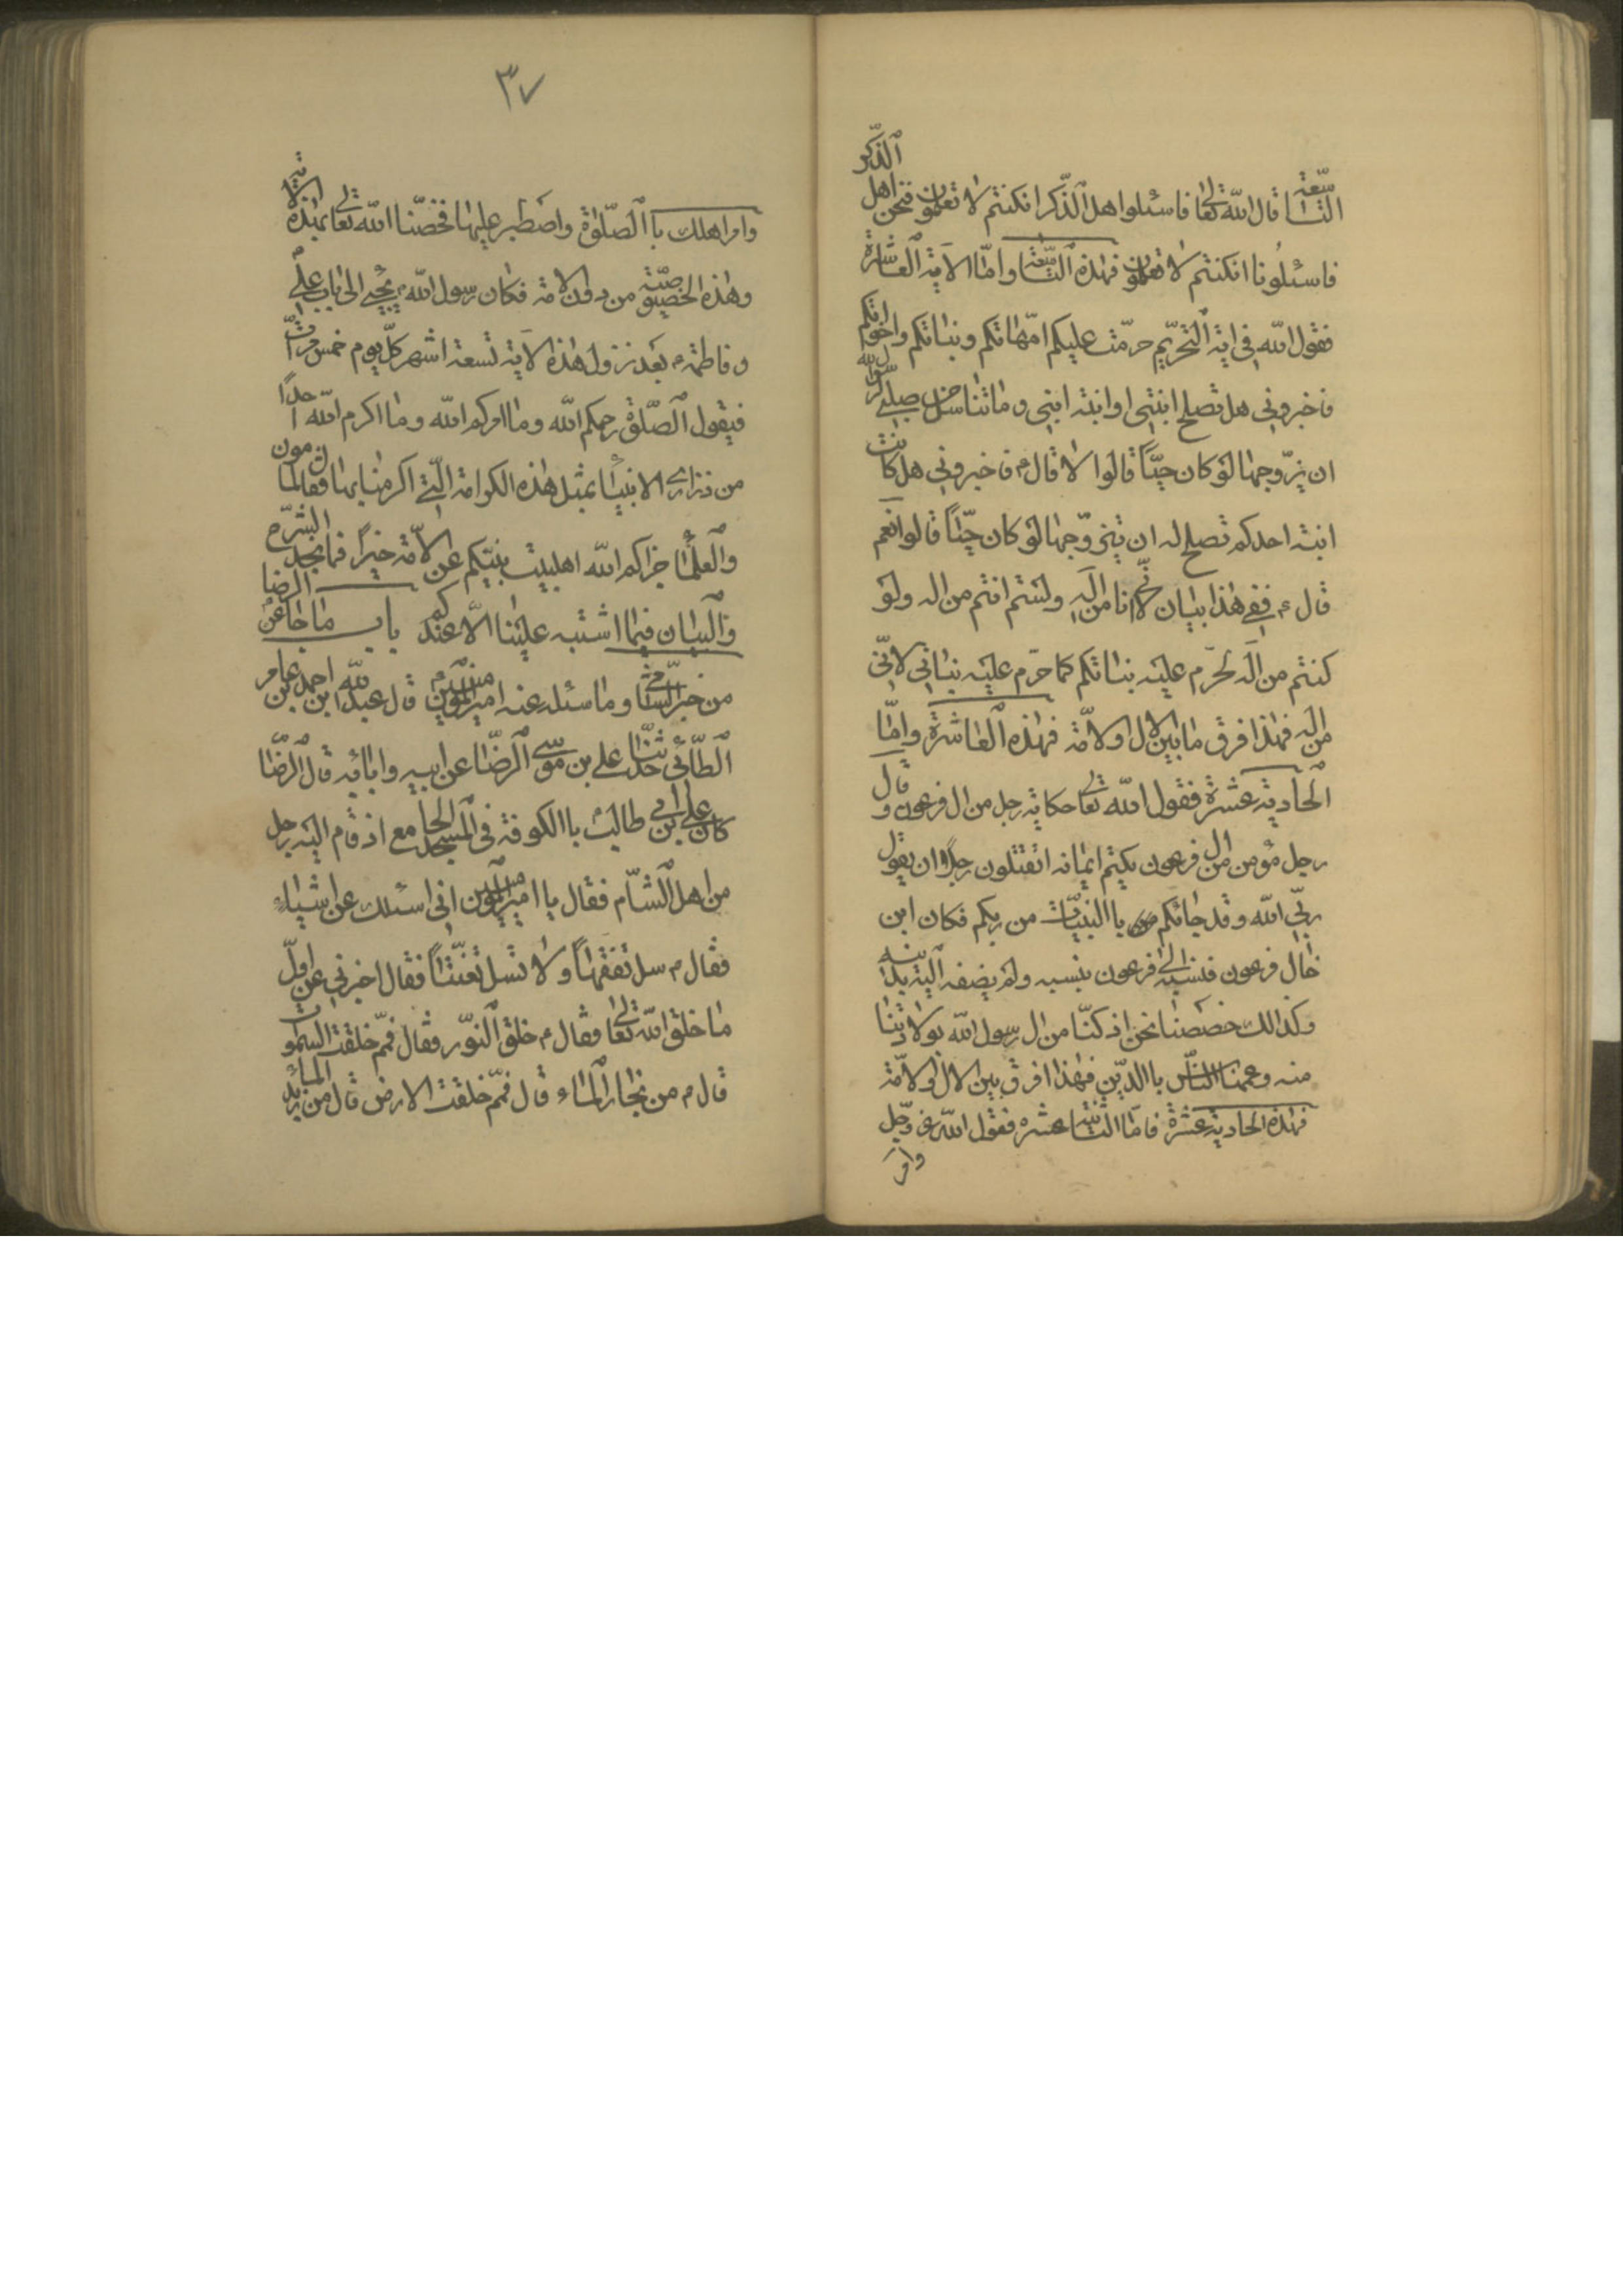 التاسعة قال الله تعالى فاسئلوا اهل الذكر انكنتم لا تعلمون فنحن اهل الذكر
فاسئلونا انكنتم لا تعلمون فهذه التاسعة واما الاية العاشرة
فقول الله في اية التحريم حرمت عليكم امهاتكم وبناتكم واخواتكم
فاخبروني هل تصلح ابنتي او ابنة ابني وما تناسل من صلبي لرسول الله
ان يزوجها لو كان حيا قالوا لا قال ع فاخبروني هل كانت
ابنة احدكم تصلح له ان يتزوجها لو كان حيا قالوا نعم
قال ع ففي هذا بيان لانا من اله ولستم انتم من اله ولو
كنتم من اله لحرم عليه بناتكم كما حرم عليه بناتي لاني
من اله فهذا فرق ما بين الال والامة فهذه العاشرة واما
الحادية عشرة فقول الله تعالى حكاية رجل من ال فرعون وقال
رجل مؤمن من ال فرعون يكتم ايمانه اتقتلون رجلا ان يقول
ربي الله وقد جائكم باالبينات من ربكم فكان ابن
خال فرعون فنسبه الى فرعون بنسبه ولم يضفه اليه بدينه
وكذالك خصصنا نحن اذ كنا من ال رسول الله بولادتنا
منه وعممنا الناس باالدين فهذا فرق بين الال والامة
فهذه الحادية عشرة فاما الثانية عشره فقول الله عز وجل
وامر
٣٧
وامر اهلك باالصلوة واصطبر عليها فخصنا الله تعالى بهذه الاية
وهذه الخصيصة من دون الامة فكان رسول الله ص يجيئ الى باب علي
وفاطمة ع بعد نزول هذه الاية تسعة اشهر كل يوم خمس مرات
فيقول الصلوة رحمكم الله وما اكرم الله احدا
من ذراري الانبياء بمثل هذه الكرامة التي اكرمنا بها فقال المامون
والعلماء جزاكم الله اهلبيت نبيكم عن الامة خيرا فما نجد الشرح
والبيان فيما اشتبه علينا الا عندكم باب ما جاء عن الرضا
من خبر الشامي وما سئله عنه امير المؤمنين ع قال عبد الله ابن احمد بن عامر
الطائي حدثنا علي بن موسى الرضا عن ابيه وابائه قال الرضا
كان علي ابن ابي طالب باالكوفة في المسجد الجامع اذ قام اليه رجل
من اهل الشام فقال يا امير المؤمنين اني اسئلك عن اشياء
فقال ع سل تفقها ولا تسل تعنتا فقال اخبرني عن اول
ما خلق الله تعالى وقال ع خلق النور فقال فمم خلقت السموات
قال ع من بخار الماء قال فمم خلقت الارض قال من زبد الماء